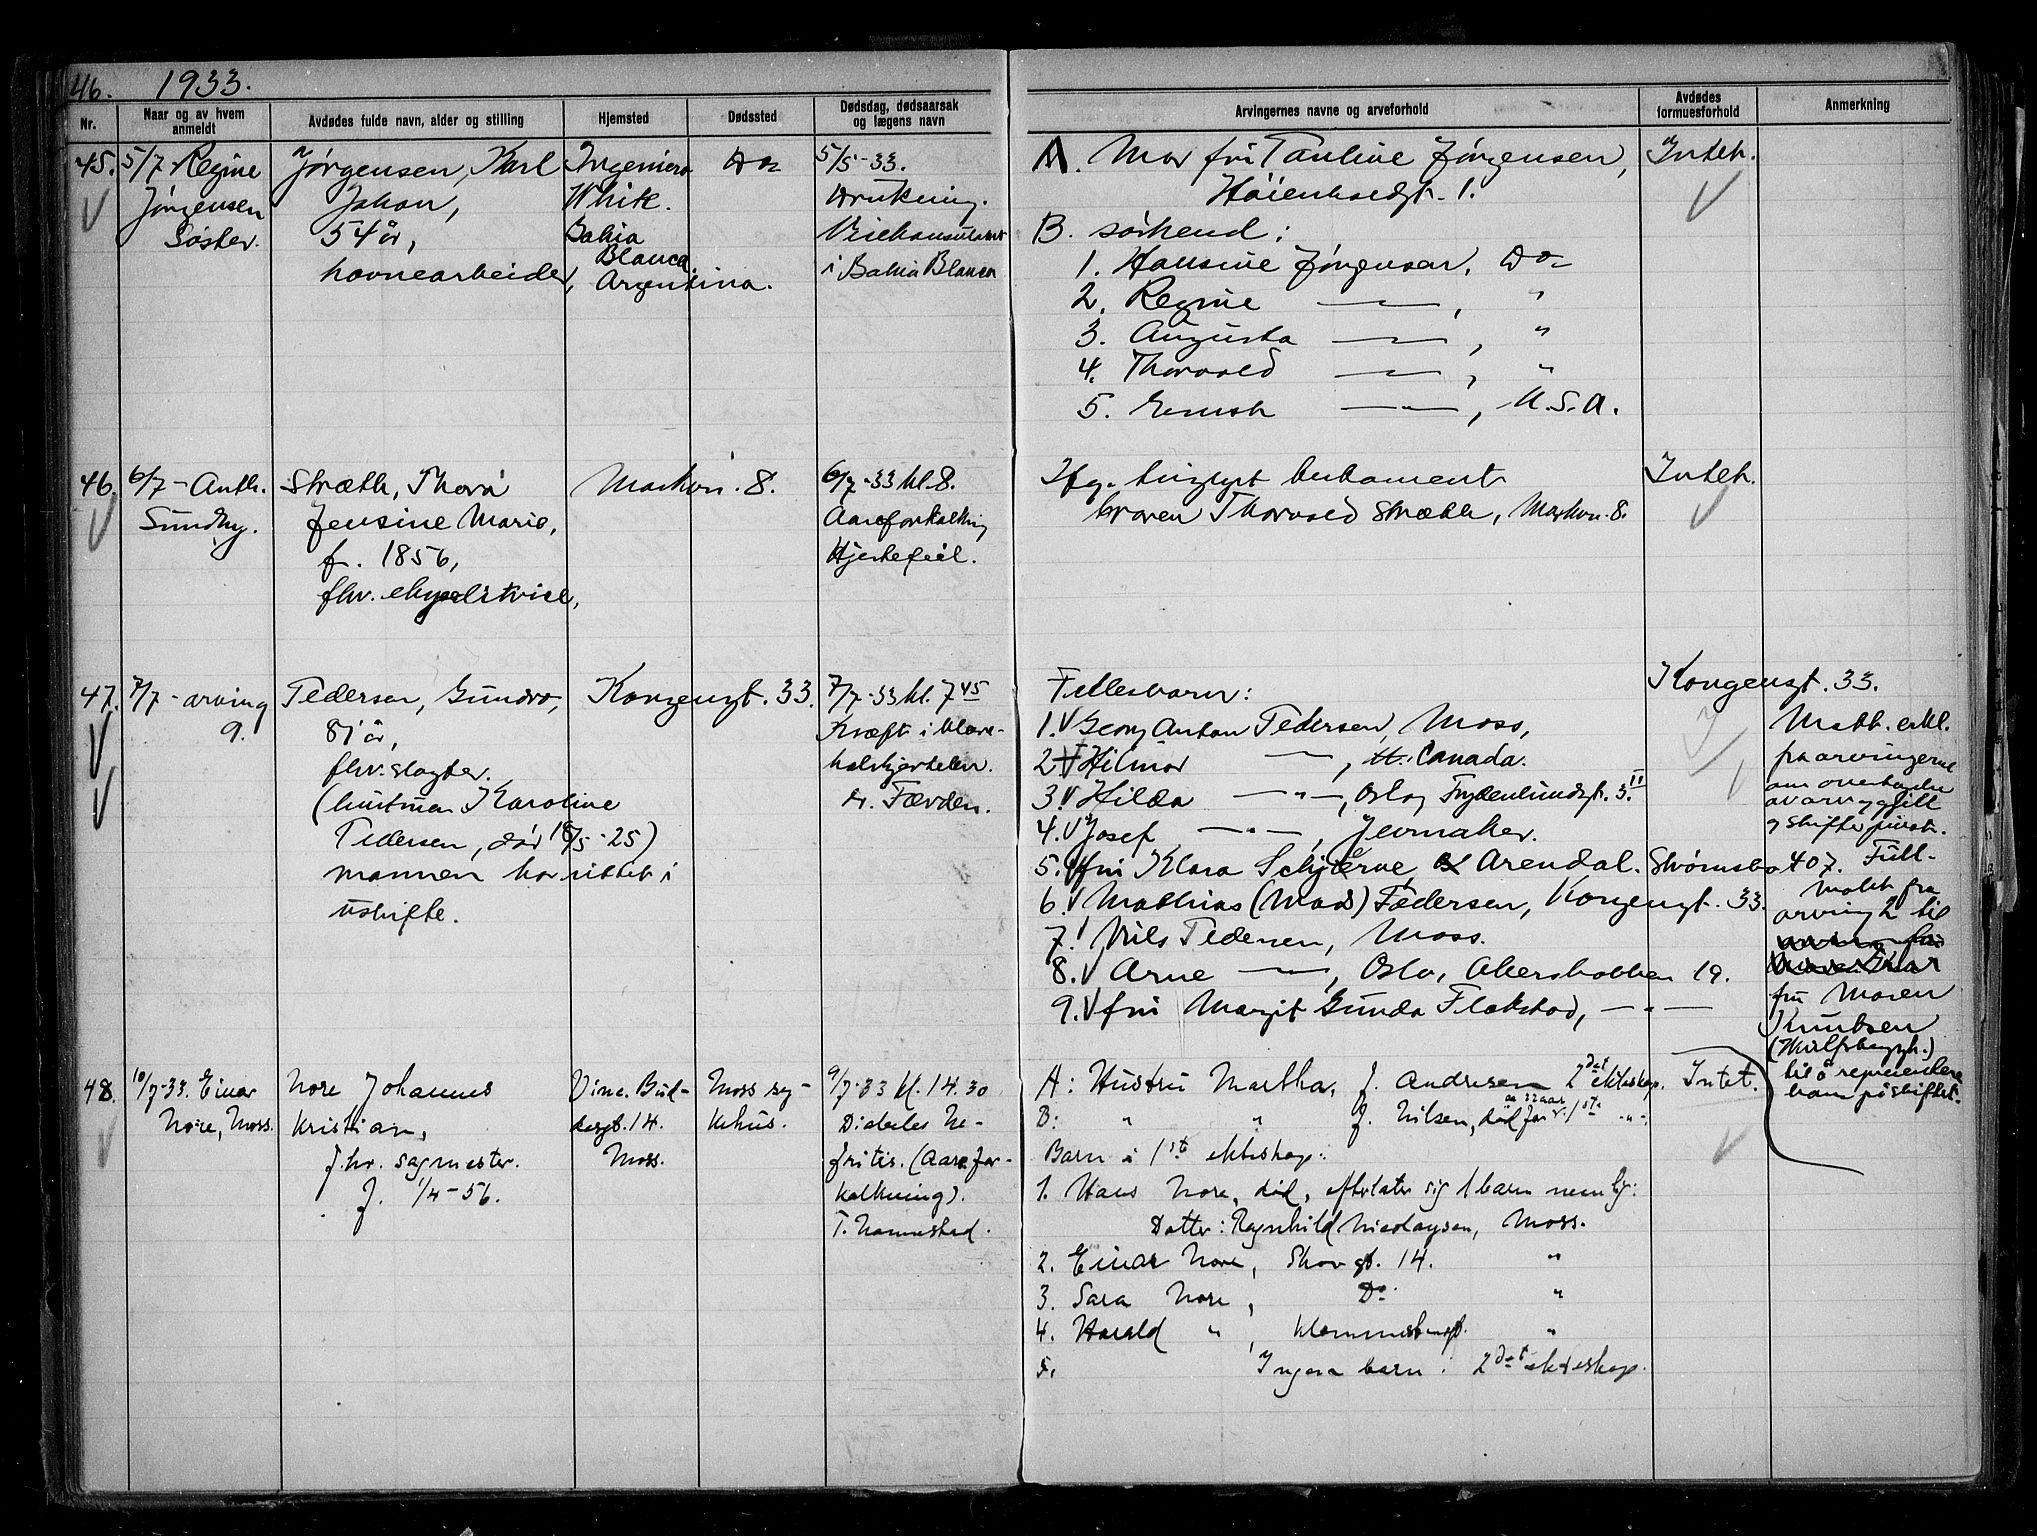 46. 1933.
Nr.
Naar og av hvem anmeldt
Avdødes fulde navn, alder og stilling
Hjemsted
Dødssted
Dødsdag, dødsaarsak og lægens navn
Arvingernes navne og arveforhold
Avdødes formuesforhold
Anmerkning
45.
5/7 - Regine
Jørgensen
Søster.
Jørgensen, Karl
Johan,
54 år,
havnearbeider,
Ingeniero
White.
Bahia
Blanca,
Argentina.
Do
5/5 - 33.
Drukning.
Visekonsulatet
i Bahia Blanca
A. Mor fru Pauline Jørgensen,
Høienholdgt. 1.
B. søskend:
1. Hansine Jørgensen, Do
2. Regine —"—, "
3. Augusta —"—, "
4. Thorvald —"—, "
5. Ernst —"—, U.S.A.
Intet.
46.
6/7 - Anth.
Sundby.
Stræth, Thora
Jensine Marie,
f. 1856,
fhv. ekspeditrise,
Markvn. 8.
6/7 - 33 kl. 8.
Aareforkalkning
Hjertefeil.
Ifg. tinglyst testament
broren Thorvald Stræth, Markvn. 8.
Intet.
47.
7/7 - arving
9.
Pedersen, Gundro,
81 år,
fhv. slagter.
(hustruen Karoline
Pedersen, død 18/5 - 25)
mannen har sittet i
uskifte.
Kongensgt. 33.
7/7 - 33 kl. 7 45
Kræft i blære-
halskjertelen.
Dr. Færden.
Fellesbarn:
1. Georg Anton Pedersen, Moss,
2. Hilmar —"—, Canada.
3. Hilda —"—, Oslo, Frydenlundsgt. 3. II
4. Josef —"—, Jevnaker.
5. fru Klara Schjærve, Arendal. Strømsbo 407.
6. Mathias (Mads) Pedersen, Kongensgt. 33.
7. Nils Pedersen, Moss.
8. Arne —"—, Oslo, Akersbakken 19.
9. fru Margit Gunda Flakstad, —"—
Kongensgt. 33.
Matt. erkl.
fra arvingerne
om overtagelse
av arv og gjeld
og skifte privat.
Full-
makt fra
arving 2 til
fru Maren
Knutsen
til å representere
ham på skiftet.
48.
10/7 - 33. Einar
Nore, Moss.
Nore Johannes
Kristian,
f.hv. sagmester.
f. 1/4 - 56.
Vinc. Bud-
desgt. 14.
Moss.
Moss sy-
kehus.
9/7 - 33 kl. 14.30
Diabetes Ne-
fritis. (Aarefor-
kalkning).
T. Nannestad.
A: Hustru Martha, f. Andresen 2det ekteskap.
B: " " f. Nilsen, død for ca 32 aar s. 1ste -"-
Barn i 1st ekteskap:
1. Hans Nore, død, efterlater sig 1 barn nemlig:
Datter: Ragnhild Nicolaysen, Moss.
2. Einar Nore, Skovgt. 14. "
3. Sara Nore, Do "
4. Harald " , Klommestensgt. "
5. Ingen barn i 2det ekteskap.
Intet.